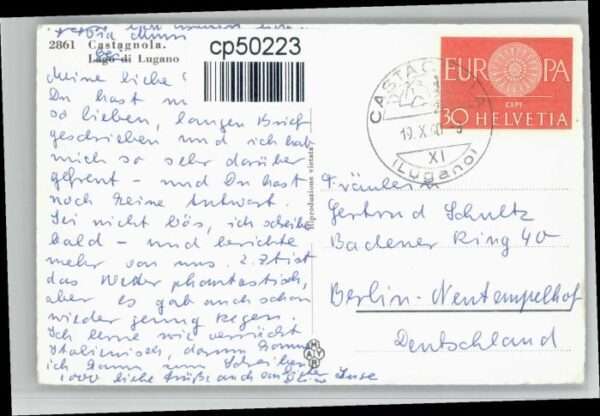 2861 Castagnola.
Lago di Lugano
cp50223
Meine liebe
Du hast m
so lieben, langen Brief
geschrieben und ich hab
mich so sehr darüber
gefreut - und Du hast
noch keine Antwort.
Sei nicht bös, ich schreibe
bald - und berichte
mehr von uns. Z.Zt ist
das Wetter phantastisch,
aber es gab auch schon
wieder genug Regen.
Ich lerne wie verrückt
Italienisch, darum komme
ich kaum zum Schreiben
1000 liebe Grüße auch an
Deine Inse
Riproduzione vietata
EUROPA
CEPT
30 HELVETIA
CASTAGNOLA
19.X.60
XI
(Lugano)
Fräulein
Gertrud Schultz
Badener Ring 40
Berlin-Neutempelhof
Deutschland